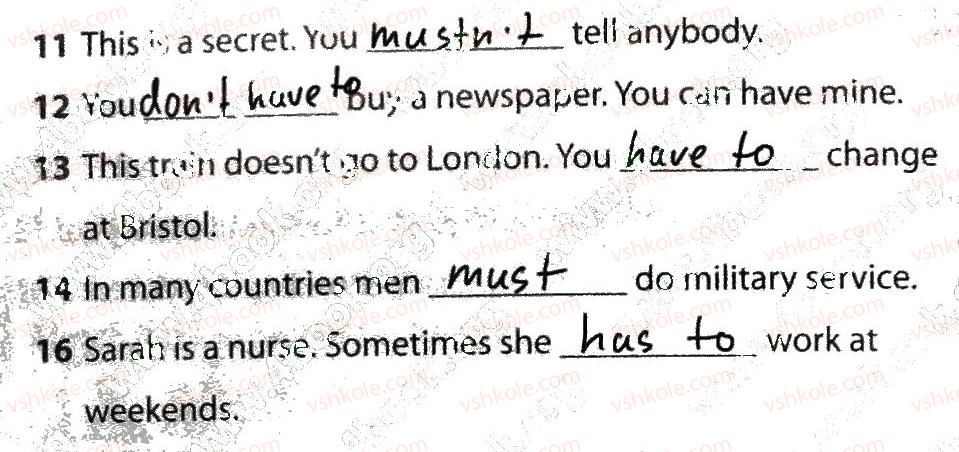 11 This is a secret. You mustn't tell anybody.
12 You don't have to buy a newspaper. You can have mine.
13 This train doesn't go to London. You have to change
at Bristol.
14 In many countries men must do military service.
16 Sarah is a nurse. Sometimes she has to work at
weekends.